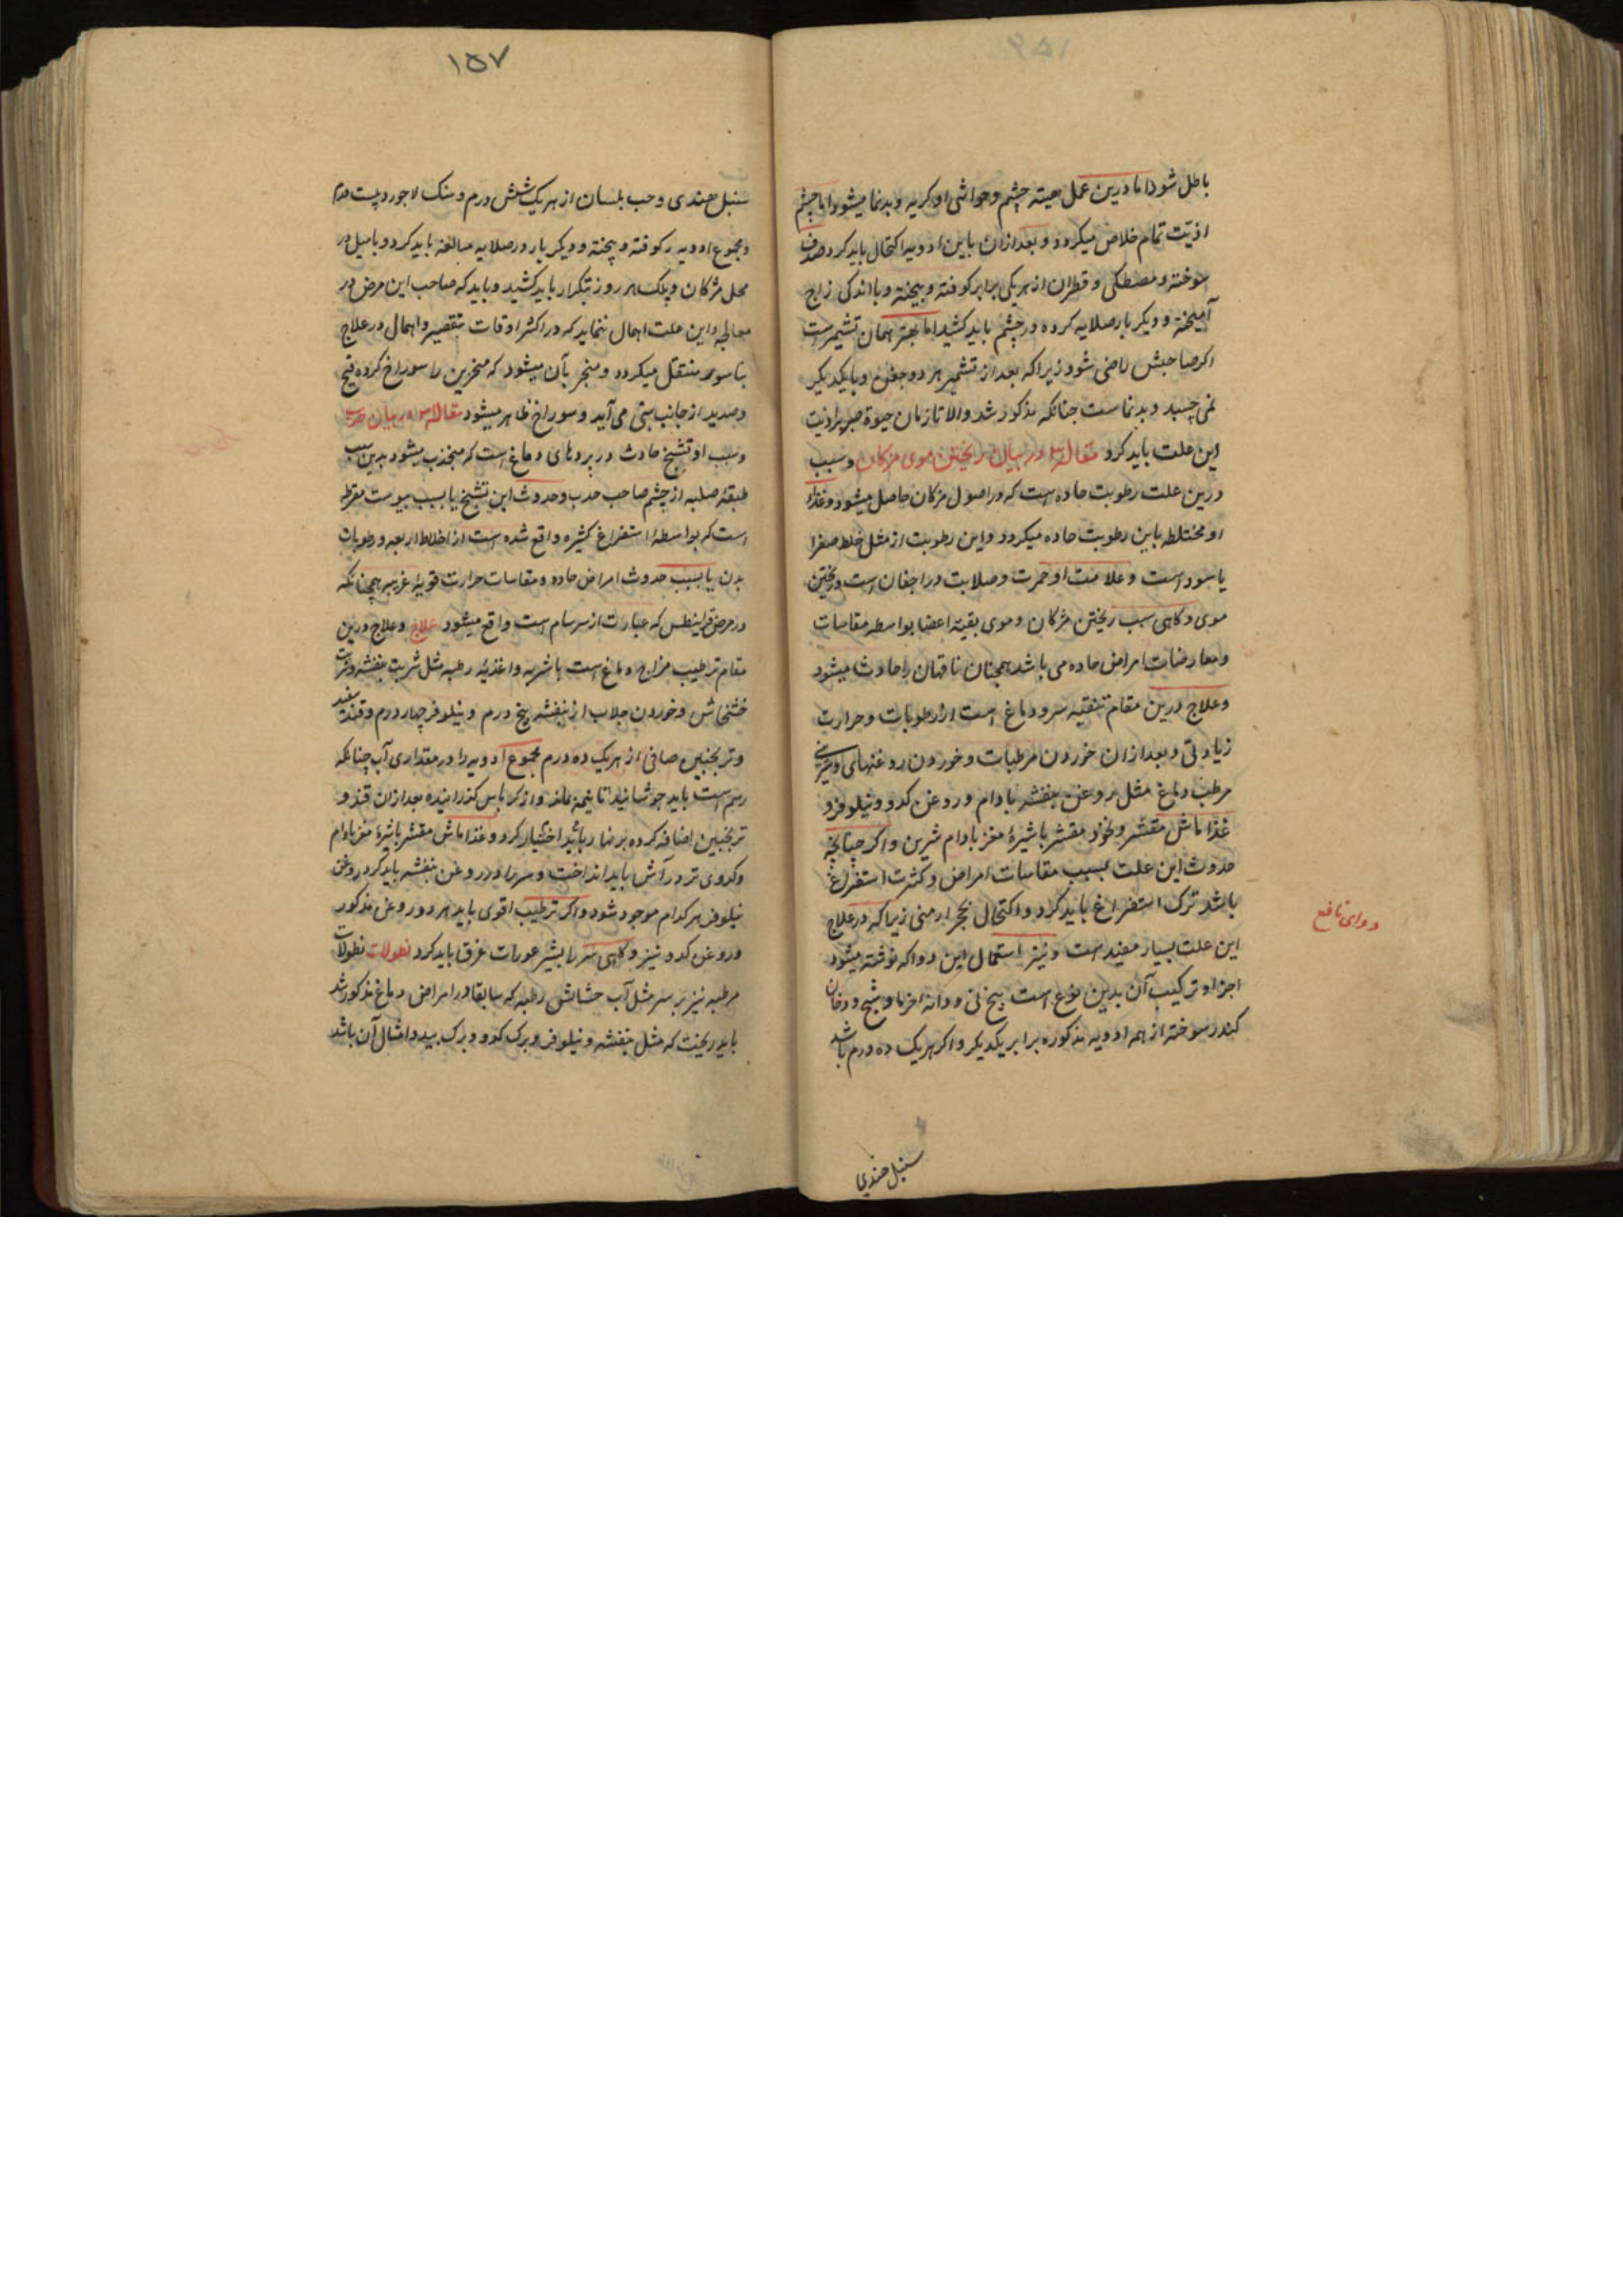 باطل شود اما درین عمل هیئة چشم و حواشی او کریه و بدنما میشود اما چشم
اذیت تمام خلاص میکردد و بعد ازان باین ادویه اکتحال باید کرد صدف
سوخته و مصطکی و قطران از هر یکی برابر کوفته و بیخته و با اندکی زاج
آمیخته و دیکر بار صلایه کرده در چشم باید کشید اما بهتر همان تشمیرست
اکر صاحبش راضی شود زیرا که بعد از تشمیر هر دو جفن و با یکدیکر
نمی چسبد و بدنماست جنانکه مذکور شد والا تا زمان حیوة صبر بر اذیت
این علت باید کرد مقاله در بیان ریختن موی مژکان و سبب
درین علت رطوبت حاده است که در اصول مژکان حاصل میشود و غذاء
او مختلطه باین رطوبت حاده میکردد و این رطوبت از مثل خلط صفرا
یا سوداست و علامت او حمرت و صلابت در اجفان است و ریختن
موی و کاهی سبب ریختن مژکان و موی بقیه اعضا بواسطه مقاسات
و معارضات امراض حاده می باشد همچنان ناقهان را حادث میشود
و علاج درین مقام تنقیه سر و دماغ است از رطوبات و حرارت
زیادتی و بعد ازان خوردن مرطبات و خوردن روغنهای
مرطب دماغ مثل روغن بنفشه بادام و روغن کدو و نیلوفر و
غذا ماش مقشر و نخود مقشر با شیرهٔ مغز بادام شیرین و اکر چنانچه
حدوث این علت بسبب مقاسات امراض و کثرت استفراغ
باشد ترک استفراغ باید کرد و اکتحال بحجر ارمنی زیرا که در علاج
دوای نافع
این علت بسیار مفید است و نیز استعمال این دوا که نوشته میشود
اجزاو ترکیب آن بدین نوع است بیخ نی و دانه خرما و شیح و دخان
کندر سوخته از همه ادویه مذکوره برابر یکدیکر و اکر هر یک ده درم باشد
سنبل هندی
۱۵۷
سنبل هندی و حب بلسان از هر یک شش درم و سنک لاجورد بیست درم
و مجموع ادویه را کوفته و بیخته و دیکر بار در صلایه مبالغه باید کرد و با میل در
محل مژکان و پلک هر روز بتکرار باید کشید و باید که صاحب این مرض در
معالجه این علت اهمال ننماید که در اکثر اوقات بتقصیر و اهمال در علاج
بناسور منتقل میکردد و منجر بآن میشود که منخرین را سوراخ کرده قیح
و صدید از جانب بینی می آید و سوراخ ظاهر میشود مقاله در بیان
و سبب او تشنج حادث در پردهای دماغ است که منجذب میشود بدین سبب
طبقهٔ صلبه از چشم صاحب حدب و حدوث این تشنج یا بسبب یبوست مفرطه
است که بواسطهٔ استفراغ کثیره واقع شده است از اخلاط اربعه و رطوبات
بدن یا بسبب حدوث امراض حاده و مقاسات حرارت قویهٔ غریبه همچنانکه
در مرض قرانیطس که عبارت از سرسام است واقع میشود علاج و علاج درین
مقام ترطیب مزاج دماغ است باشربه و اغذیهٔ رطبه مثل شربت بنفشه و شربت
خشخاش و خوردن جلاب از بنفشه پنج درم و نیلوفر چهار درم و قند سفید
و ترنجبین صافی از هر یک ده درم مجموع ادویه را در مقداری آب چنانکه
رسم است باید جوشانید تا بنیمه ماند و از کرباس کذرانیده بعد ازان قند و
ترنجبین اضافه کرده بر نهار باید اختیار کرد و غذا ماش مقشر با شیرهٔ مغز بادام
و کدوی تر در آش باید انداخت و سر را در روغن بنفشه باید کرد و روغن
نیلوفر هر کدام موجود شود و اکر ترطیب اقوی باید هر دو روغن مذکور
و روغن کدو نیز و کاهی سر را بشیر عورات غرق باید کرد نطولات نطولات
مرطبه نیز بر سر مثل آب حشائش رطبه که سابقا در امراض دماغ مذکور شد
باید ریخت که مثل بنفشه و نیلوفر و برک کدو و برک بید و امثال آن باشد